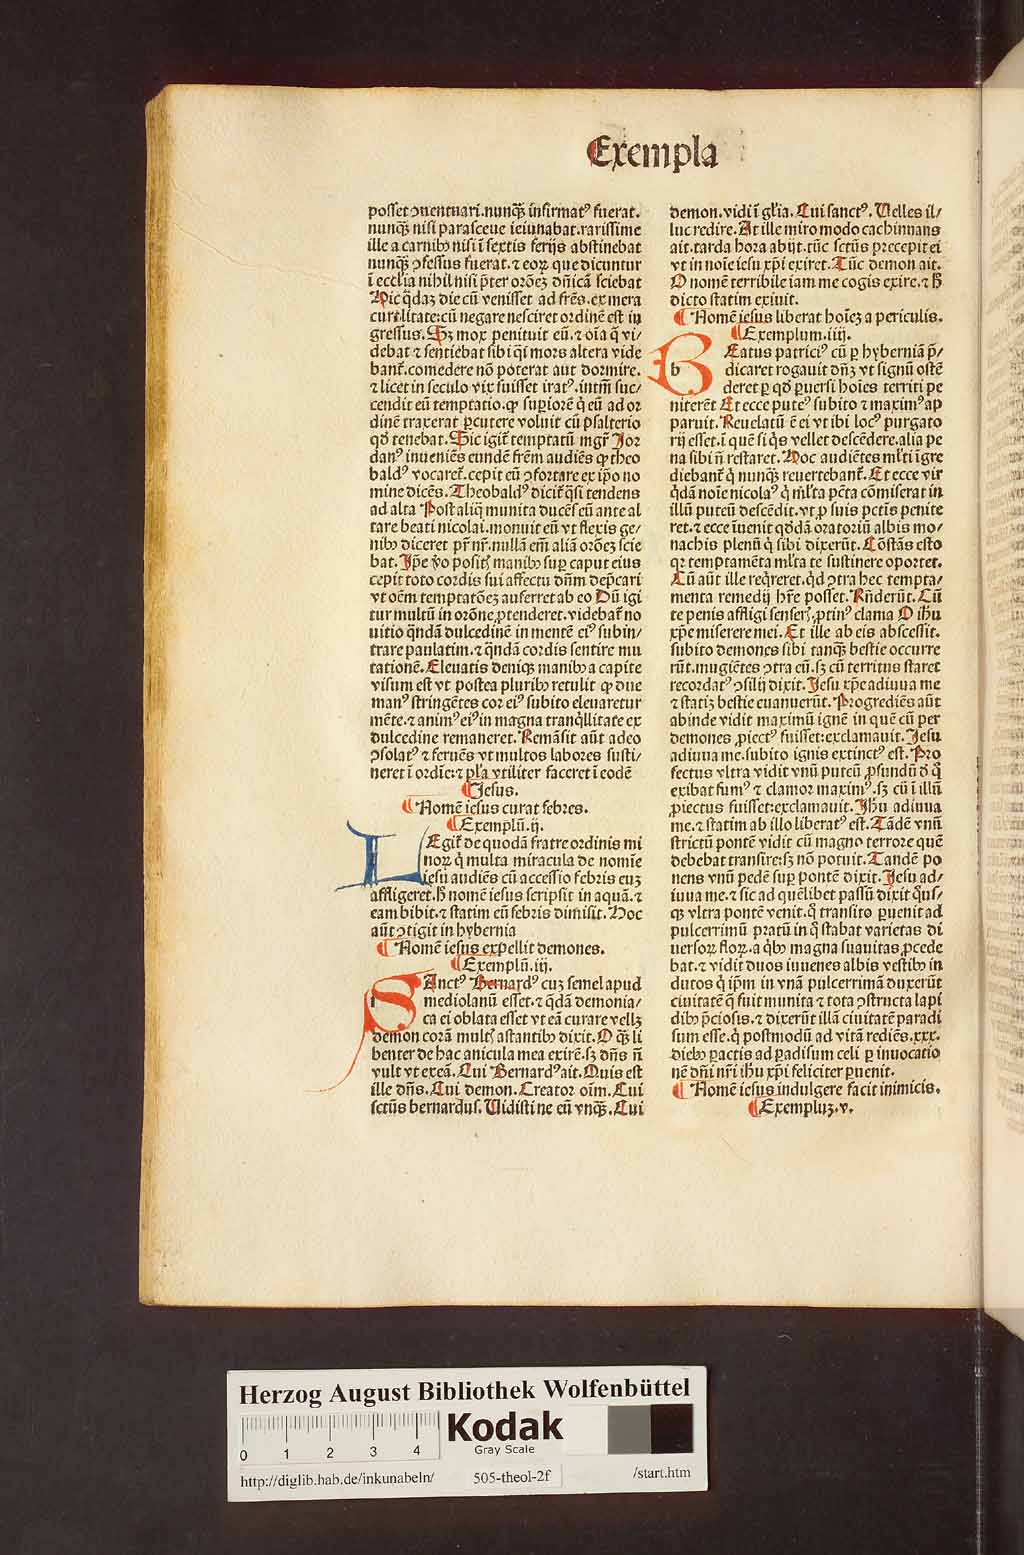 Exempla
posset ꝯuentuari. nunqȝ infirmatꝰ fuerat.
nunqȝ nisi parasceue ieiunabat. rarissime
ille a carnibꝰ nisi ī sextis ferijs abstinebat
nunqȝ ꝯfessus fuerat. ⁊ eoꝝ que dicuntur
ī ecclīa nihil nisi p̄ter orōeȝ dn̄icā sciebat
Hic q̄daȝ die cū venisset ad frēs. ex mera
curilitate: cū negare nesciret ordinē est in
gressus. Sȝ mox penituit eū. ⁊ oīa q̄ vi/
debat ⁊ sentiebat sibi q̄i mors altera vide
bant᷑. comedere nō poterat aut dormire.
⁊ licet in seculo vix fuisset iratꝰ. intm̄ suc/
cendit eū temptatio. ꝙ supiorē q̄ eū ad or
dinē traxerat ꝑcutere voluit cū psalterio
qd̄ tenebat. Sic igit᷑ temptatū mgr̄ Jor
danꝰ inueniēs eundē frēm audiēs ꝙ theo
baldꝰ vocaret᷑. cepit eū ꝯfortare ex ip̄o no
mine dicēs. Theobaldꝰ dicit᷑ q̄si tendens
ad alta Post aliq̄ munita ducēs eū ante al
tare beati nicolai. monuit eū vt flexis ge/
nibꝰ diceret pr̄ nr̄. nullā em̄ aliā orōeȝ scie
bat. Ip̄e v̄o positꝭ manibꝰ sup caput eius
cepit toto cordis sui affectu dn̄m dep̄cari
vt oēm temptatōeȝ auferret ab eo Dū igi
tur multū in orōne ꝓtenderet. videbat᷑ no
uitio q̄ndā dulcedinē in mentē eiꝰ subin/
trare paulatim. ⁊ q̄ndā cordis sentire mu
tationē. Eleuatis deniqȝ manibꝰ a capite
visum est vt postea pluribꝰ retulit ꝙ due
manꝰ stringētes cor eiꝰ subito eleuaretur
mēte. ⁊ animꝰ eiꝰ in magna tranq̄llitate ex
dulcedine remaneret. Remāsit aūt adeo
ꝯsolatꝰ ⁊ feruēs vt multos labores susti/
neret ī ordīe: ⁊ pl̄a vtiliter faceret ī eodē
¶ Jesus.
¶ Nomē iesus curat febres.
¶ Exemplū. ij.
LEgit᷑ de quodā fratre ordinis mi
noꝝ q̄ multa miracula de nomīe
iesu audiēs cū accessio febris euȝ
affligeret. H̄ nomē iesus scripsit in aquā. ⁊
eam bibit. ⁊ statim eū febris dimisit. Hoc
aūt ꝯtigit in hybernia
¶ Nomē iesus expellit demones.
¶ Exemplū. iij.
SAnctꝰ Bernardꝰ cuȝ semel apud
mediolanū esset. ⁊ q̄dā demonia/
ca ei oblata esset vt eā curare vellȝ
demon corā multꝭ astantibꝰ dixit. O qȝ li
benter de hac anicula mea exirē. sȝ dn̄s n̄
vult vt exeā. Cui Bernardꝰ ait. Quis est
ille dn̄s. Cui demon. Creator oīm. Cui
sctūs bernardus. Vidisti ne eū vnqȝ. Cui
demon. vidi ī gl̄ia. Cui sanctꝰ. Velles il/
luc redire. At ille miro modo cachinnans
ait. tarda hora abijt. tūc sctūs precepit ei
vt in noīe iesu xp̄i exiret. Tūc demon ait.
O nomē terribile iam me cogis exire. ⁊ h̄
dicto statim exiuit.
¶ Nomē iesus liberat hoīeȝ a periculis.
¶ Exemplum. iiij.
BEatus patriciꝰ cū ꝑ hyberniā p̄/
dicaret rogauit dn̄ȝ vt signū ostē
deret ꝑ qd̄ ꝑuersi hoīes territi pe
niterēt Et ecce puteꝰ subito ⁊ maximꝰ ap
paruit. Reuelatū ē ei vt ibi locꝰ purgato
rij esset. ī quē si q̄s vellet descēdere. alia pe
na sibi n̄ restaret. Hoc audiētes ml̄ti īgre
diebant᷑ q̄ nunqȝ reuertebant᷑. Et ecce vir
q̄dā noīe nicolaꝰ q̄ ml̄ta pctā cōmiserat in
illū puteū descēdit. vt ꝓ suis pctīs penite
ret. ⁊ ecce īuenit qd̄dā oratoriū albis mo/
nachis plenū q̄ sibi dixerūt. Cōstās esto
qꝛ temptamēta ml̄ta te sustinere oportet.
Cū aūt ille req̄reret. q̄d ꝯtra hec tempta/
menta remedij hr̄e posset. Rn̄derūt. Cū
te penis affligi senserꝭ ꝓtinꝰ clama O ih̄u
xp̄e miserere mei. Et ille ab eis abscessit.
subito demones sibi tanqȝ bestie occurre
rūt. mugiētes ꝯtra eū. sȝ cū territus staret
recordatꝰ ꝯsilij dixit. Jesu xp̄e adiuua me
⁊ statiȝ bestie euanuerūt. Progrediēs aūt
abinde vidit maximū ignē in quē cū per
demones ꝓiectꝰ fuisset: exclamauit. Jesu
adiuua me. subito ignis extinctꝰ est. Pro
fectus vltra vidit vnū puteū ꝓfundū d̄ q̄
exibat fumꝰ ⁊ clamor maximꝰ. sȝ cū ī illū
ꝓiectus fuisset: exclamauit. Ih̄u adiuua
me. ⁊ statim ab illo liberatꝰ est. Tādē vnū
strictū pontē vidit cū magno terrore quē
debebat transire: sȝ nō potuit. Tandē po
nens vnū pedē sup pontē dixit. Jesu ad/
iuua me. ⁊ sic ad quēlibet passū dixit q̄us/
qȝ vltra pontē venit. q̄ transito ꝑuenit ad
pulcerrimū pratū in q̄ stabat varietas di
uersoꝝ floꝝ. a q̄bꝰ magna suauitas ꝓcede
bat. ⁊ vidit duos iuuenes albis vestibꝰ in
dutos q̄ ip̄m in vnā pulcerrimā duxerūt
ciuitatē q̄ fuit munita ⁊ tota ꝯstructa lapi
dibꝰ p̄ciosis. ⁊ dixerūt illā ciuitatē paradi
sum esse. q̄ postmodū ad vitā rediēs. xxx.
diebꝰ ꝑactis ad ꝑadisum celi ꝑ inuocatio
nē dn̄i nr̄i ih̄u xp̄i feliciter ꝑuenit.
¶ Nomē iesus indulgere facit inimicis.
¶ Exempluȝ. v.
Herzog August Bibliothek Wolfenbüttel
Kodak
Gray Scale
0 1 2 3 4
http://diglib.hab.de/inkunabeln/ 505-theol-2f /start.htm